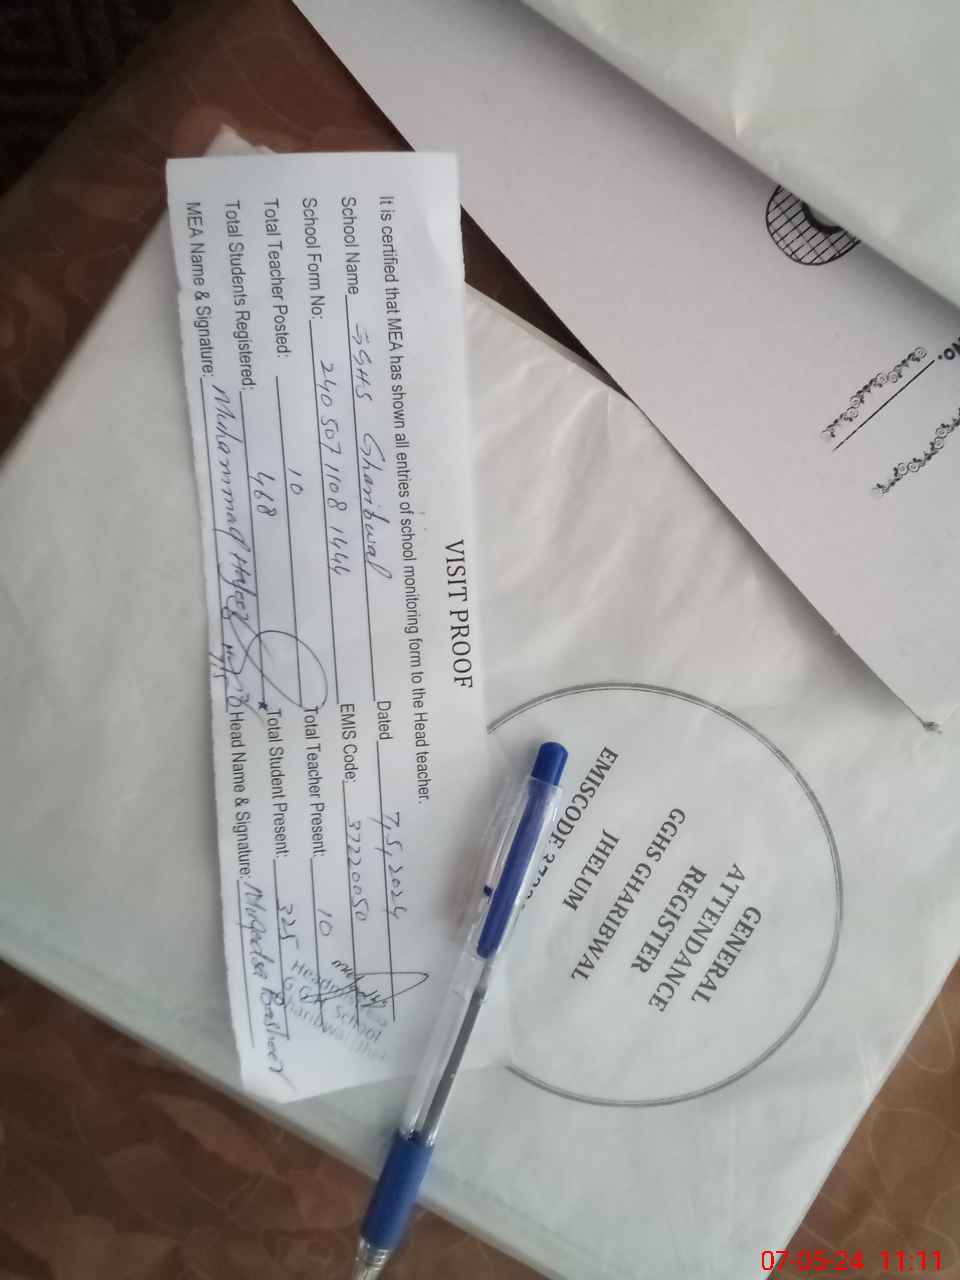 VISIT PROOF
It is certified that MEA has shown all entries of school monitoring form to the Head teacher.
School Name GGHS Gharibwal Dated 7,5,2024
School Form No: 240 507 1108 1444 EMIS Code: 37220050
Total Teacher Posted: 10 Total Teacher Present: 10
Total Students Registered: 468 Total Student Present: 325
MEA Name & Signature: Muhammad Hafeez Head Name & Signature: Muqadsa Basheer
School
Gharibwal
GENERAL
ATTENDANCE
REGISTER
GGHS GHARIBWAL
JHELUM
EMISCODE
No.
07-05-24 11:11